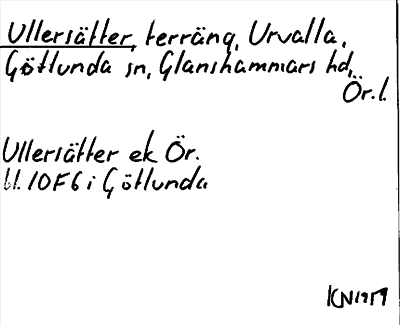 Ullersätter, terräng, Urvalla,
Götlunda sn, Glanshammars hd,
Ör. l.
Ullersätter ek Ör.
bl. 10F6 i Götlunda
KN 1959